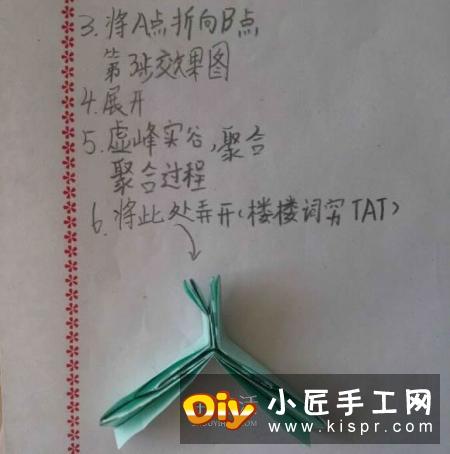 3. 将A点折向B点
第3步效果图
4. 展开
5. 虚峰实谷,聚合
聚合过程
6. 将此处弄开(楼楼词穷TAT)
Diy 小匠手工网
www.kispr.com